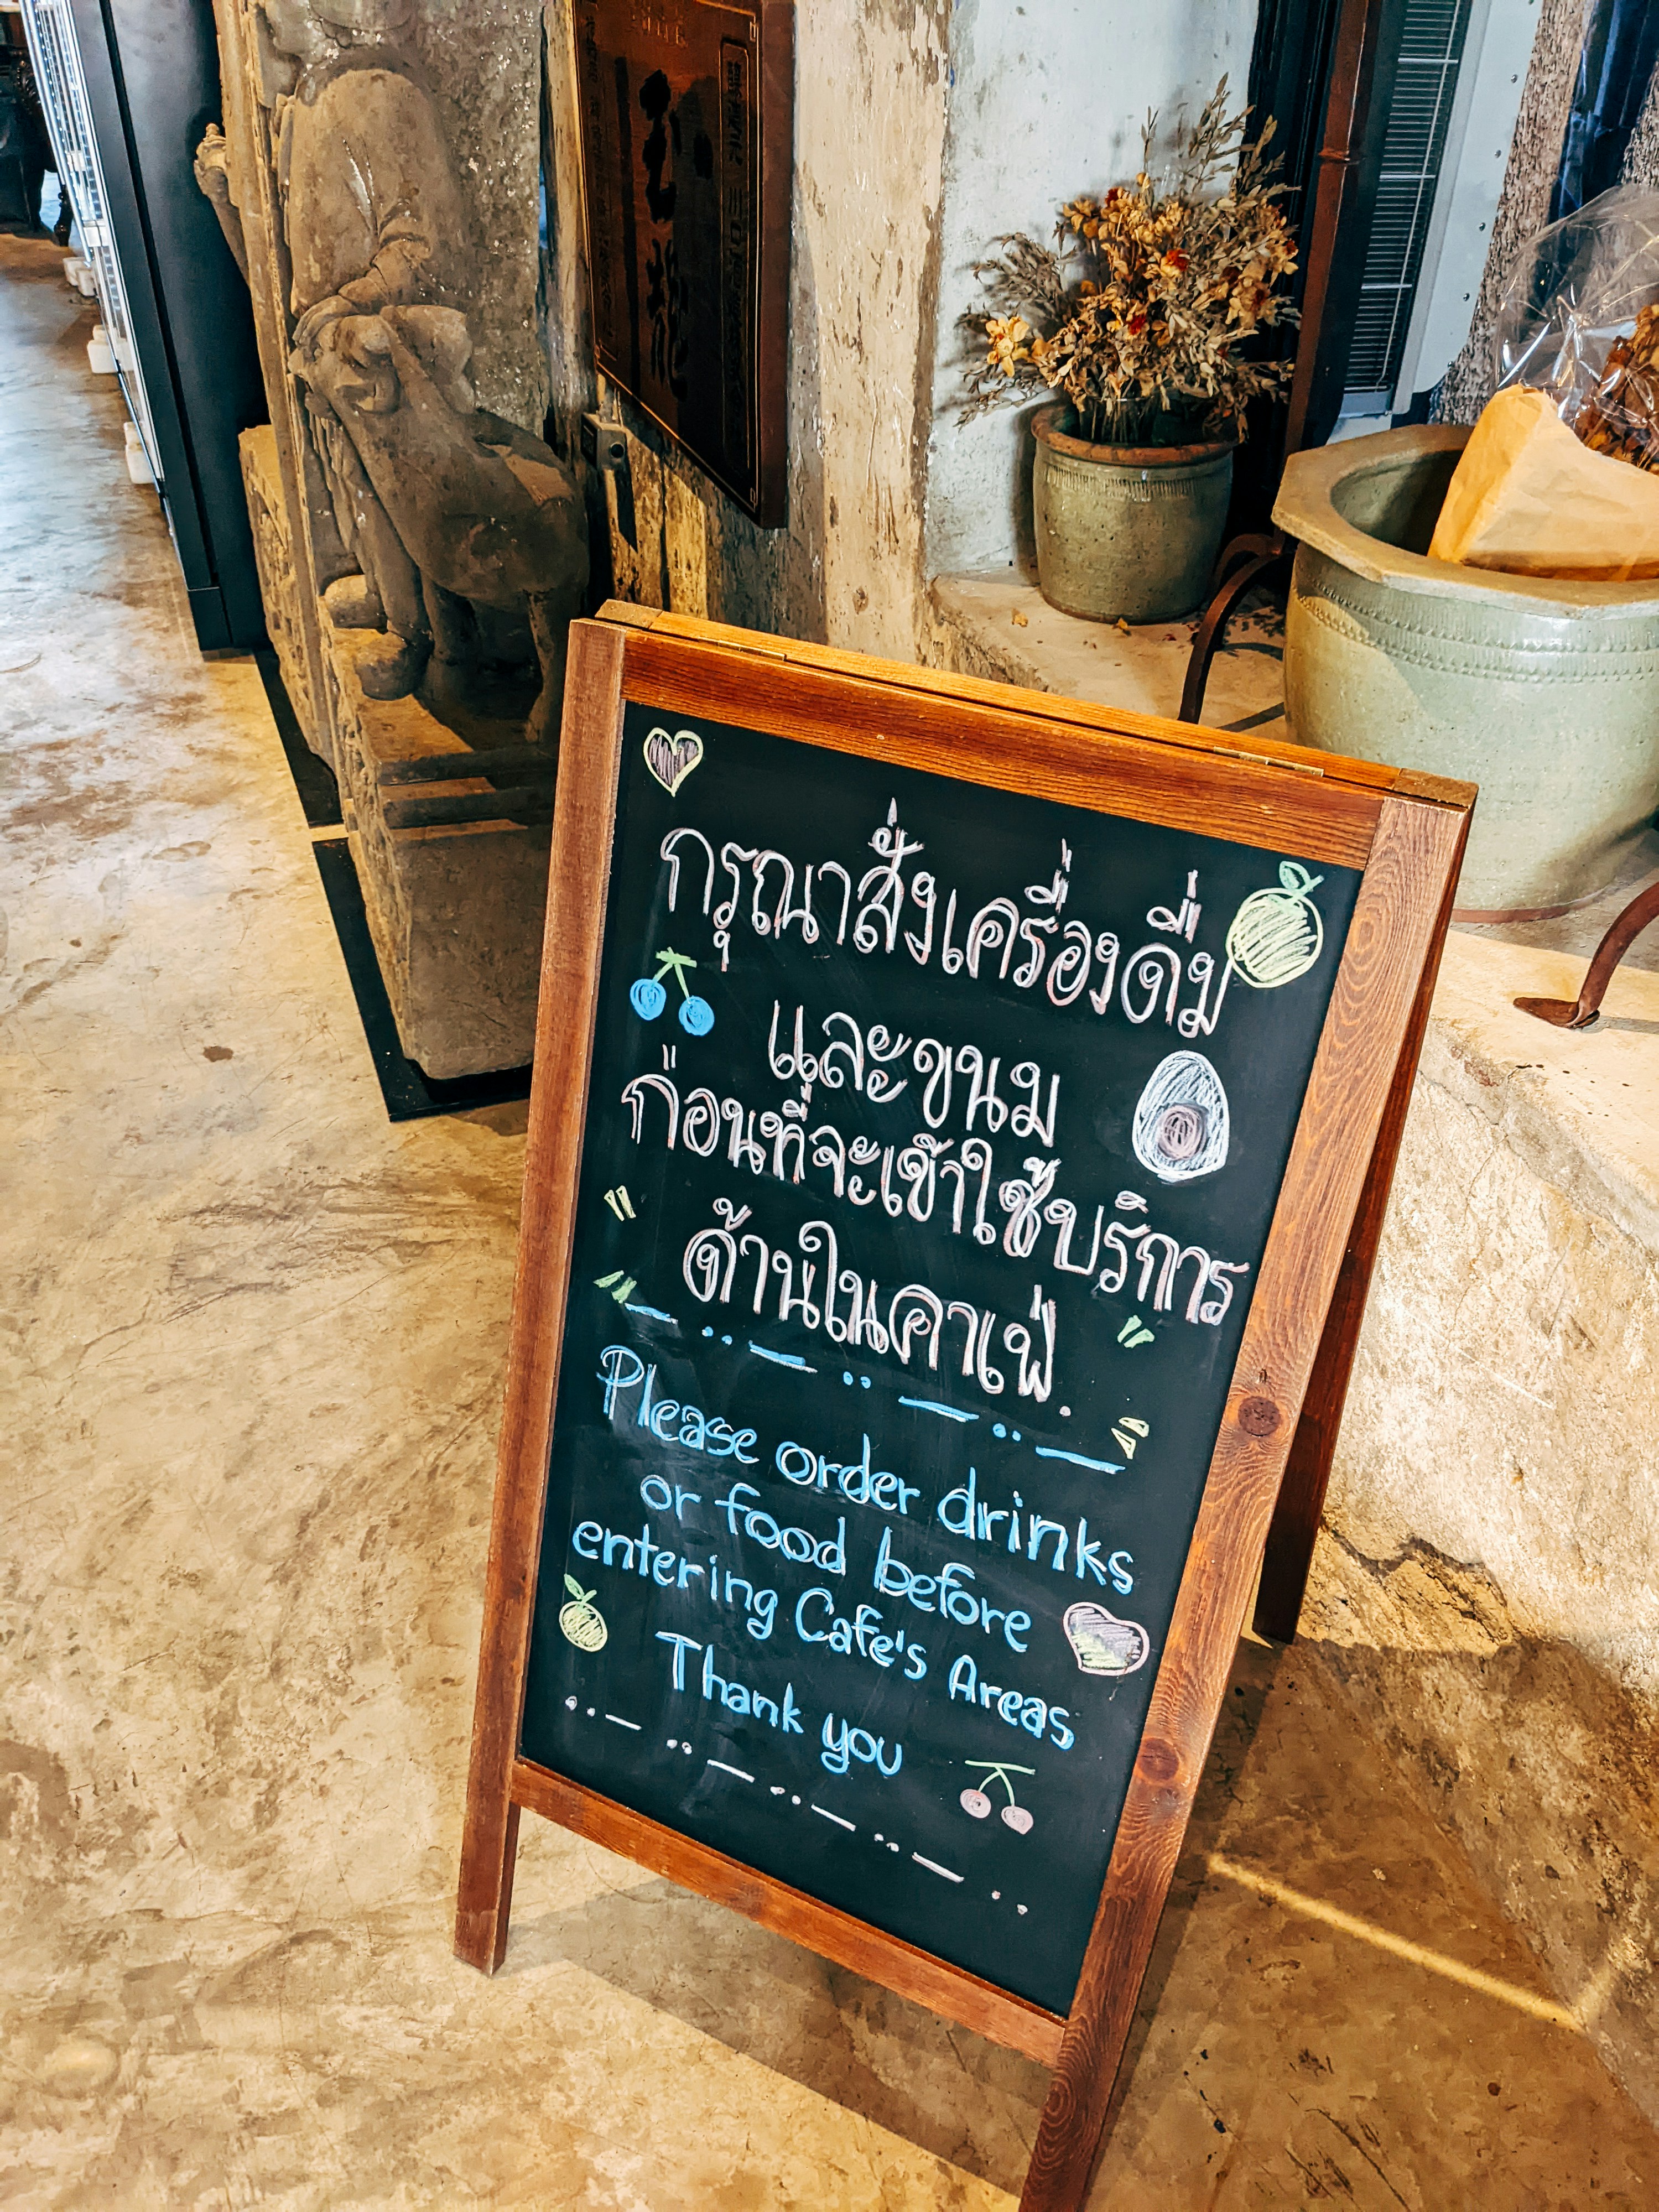 กรุณาสั่งเครื่องดื่ม
และขนม
ก่อนที่จะเข้าใช้บริการ
ด้านในคาเฟ่.
Please order drinks
or food before
entering Cafe's Areas
Thank you